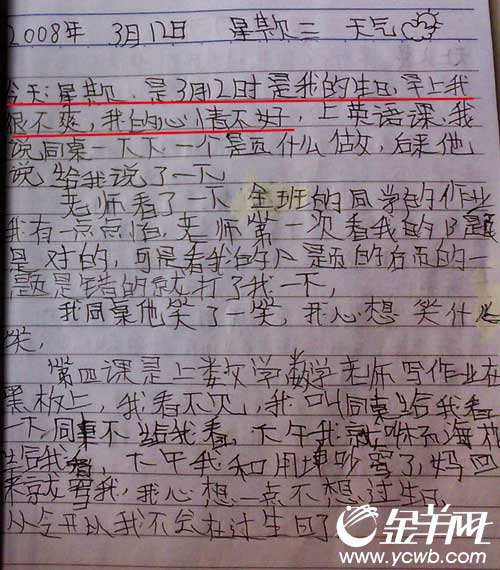 2008年 3月12日 星期三 天气
今天星期 是3月12时是我的生日,早上我
很不爽,我的心情不好,上英语课,我
说同桌一下下一个是页什么做,后来他
说给我说了一下
老师看了一下全班的同学的作业
我有一点点怕,老师第一次看我的 题
是对的,可是看我的 题页的后页的一
题是错的就打了我一下,
我同桌他笑了一笑,我心想笑什么
笑,
第四课是上数学数学老师写作业在
黑板上,我看不见,我叫同桌给我看
一下同桌不给我看,下午我
给我看,下午我和 吵骂了,妈回
来就骂我,我心想一点不想过生日
从今开以我不会在过生日了
金羊网
www.ycwb.com